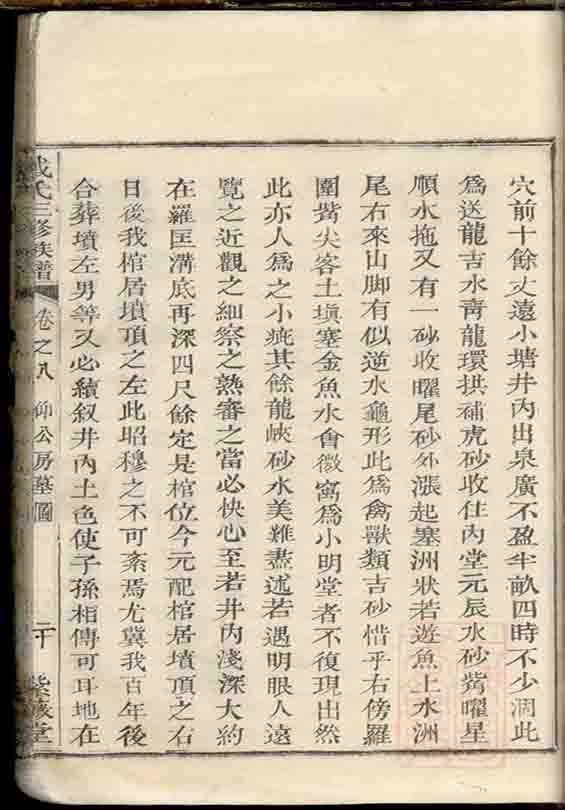 穴前十餘丈遠小塘井內出泉廣不盈半畝四時不少涸此
為送龍吉水靑龍環拱補虎砂收住內堂元辰水砂嘴曜星
順水拖又有一砂收曜尾砂外漲起塞洲狀若遊魚上水洲
尾右來山脚有似逆水龜形此為禽獸類吉砂惜乎右傍羅
圍嘴尖客土塡塞金魚水會微窩為小明堂者不復現出然
此亦人為之小疵其餘龍峽砂水美難盡述若遇明眼人遠
覽之近觀之細察之熟審之當必快心至若井內淺深大約
在羅匡溝底再深四尺餘定是棺位今元配棺居墳頂之右
日後我棺居墳頂之左此昭穆之不可紊焉尤冀我百年後
合葬墳左男等又必續叙井內土色使子孫相傳可耳地在
氏三修族譜
卷之八
仰公房墓圖
二十
堂